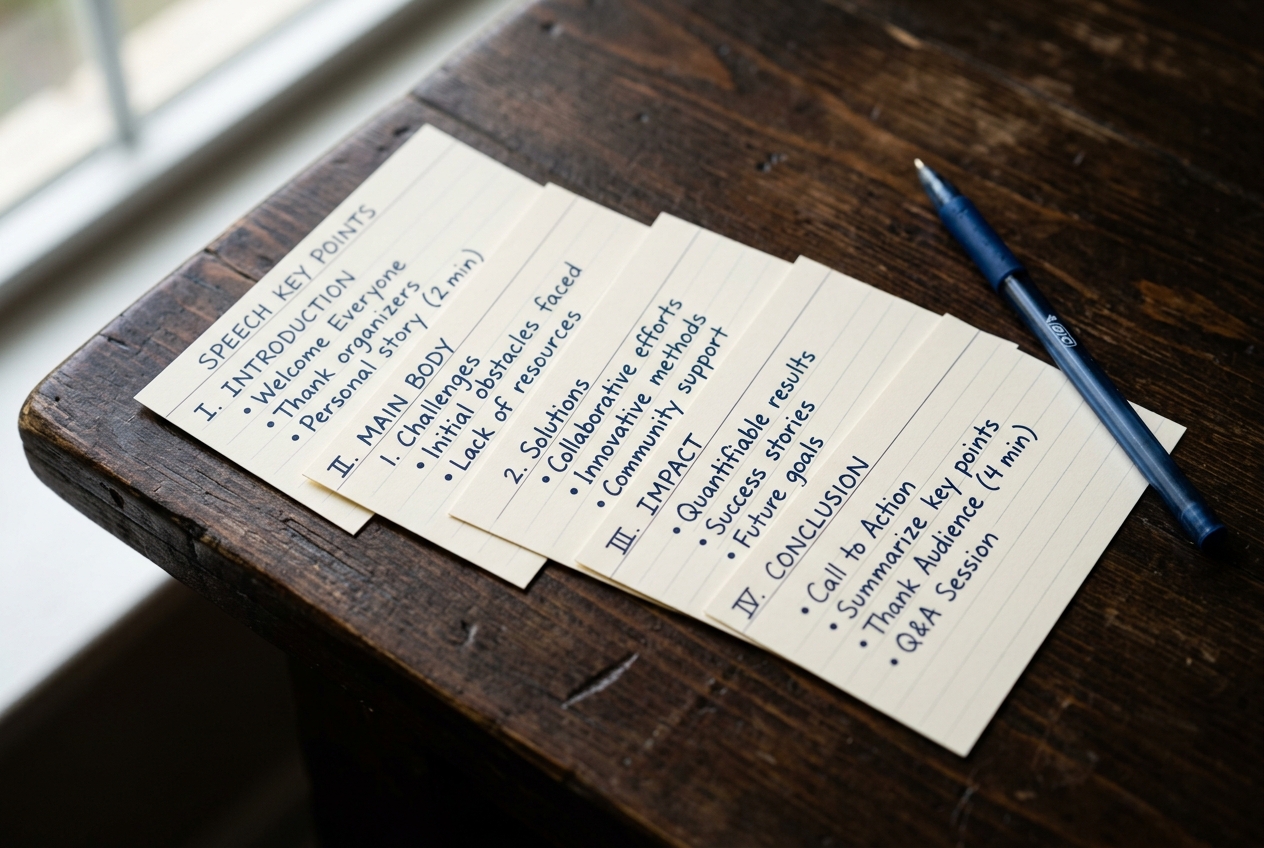 SPEECH KEY POINTS
I. INTRODUCTION
• Welcome Everyone
• Thank organizers
• Personal story (2 min)
II. MAIN BODY
1. Challenges
• Initial obstacles faced
• Lack of resources
2. Solutions
• Collaborative efforts
• Innovative methods
• Community support
III. IMPACT
• Quantifiable results
• Success stories
• Future goals
IV. CONCLUSION
• Call to Action
• Summarize key points
• Thank Audience (4 min)
• Q&A Session